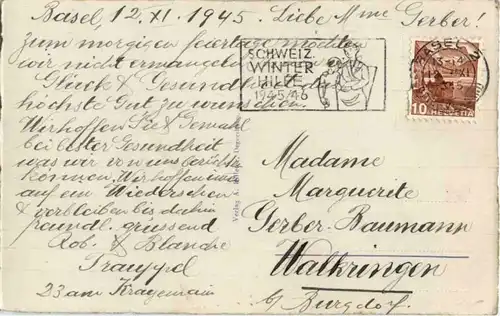 Basel, 12. XI. 1945. Liebe Mme Gerber!
zum morgigen feiertage möchten
wir nicht ermangeln
Glück & Gesundheit
höchste Gut zu wünschen.
Wir hoffen Sie & Gemahl
bei bester Gesundheit
was wir von uns berichten
können. Wir hoffen
auf ein Wiedersehen
& verbleiben bis dahin
freundl. grüssend
Rob. & Blanche
23 am
SCHWEIZ
WINTER
HILFE
1945/46
BASEL 2
10 HELVETIA
Verlag
Madame
Marguerite
Gerber-Baumann
Walkringen
b/ Burgdorf.